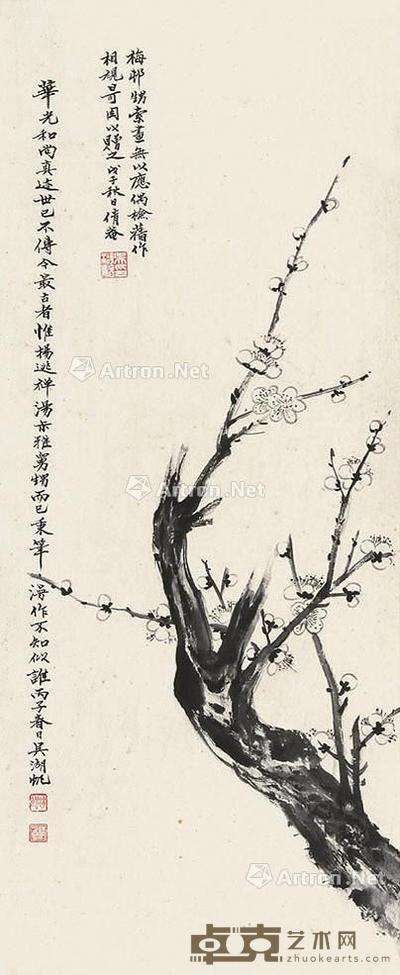 梅邨甥索画無以應偶檢舊作
相規哥因以贈之戊子秋日倩菴
華光和尚真迹世已不傳今最古者惟楊逃禅湯未雅舅甥而已秉筆漫作不知似誰丙子春日吳湖帆
Artron.Net
Artron.Net
Artron.Net
Artron.Net
Artron.Net
Artron.Net
卓克艺术网
zhuokearts.com